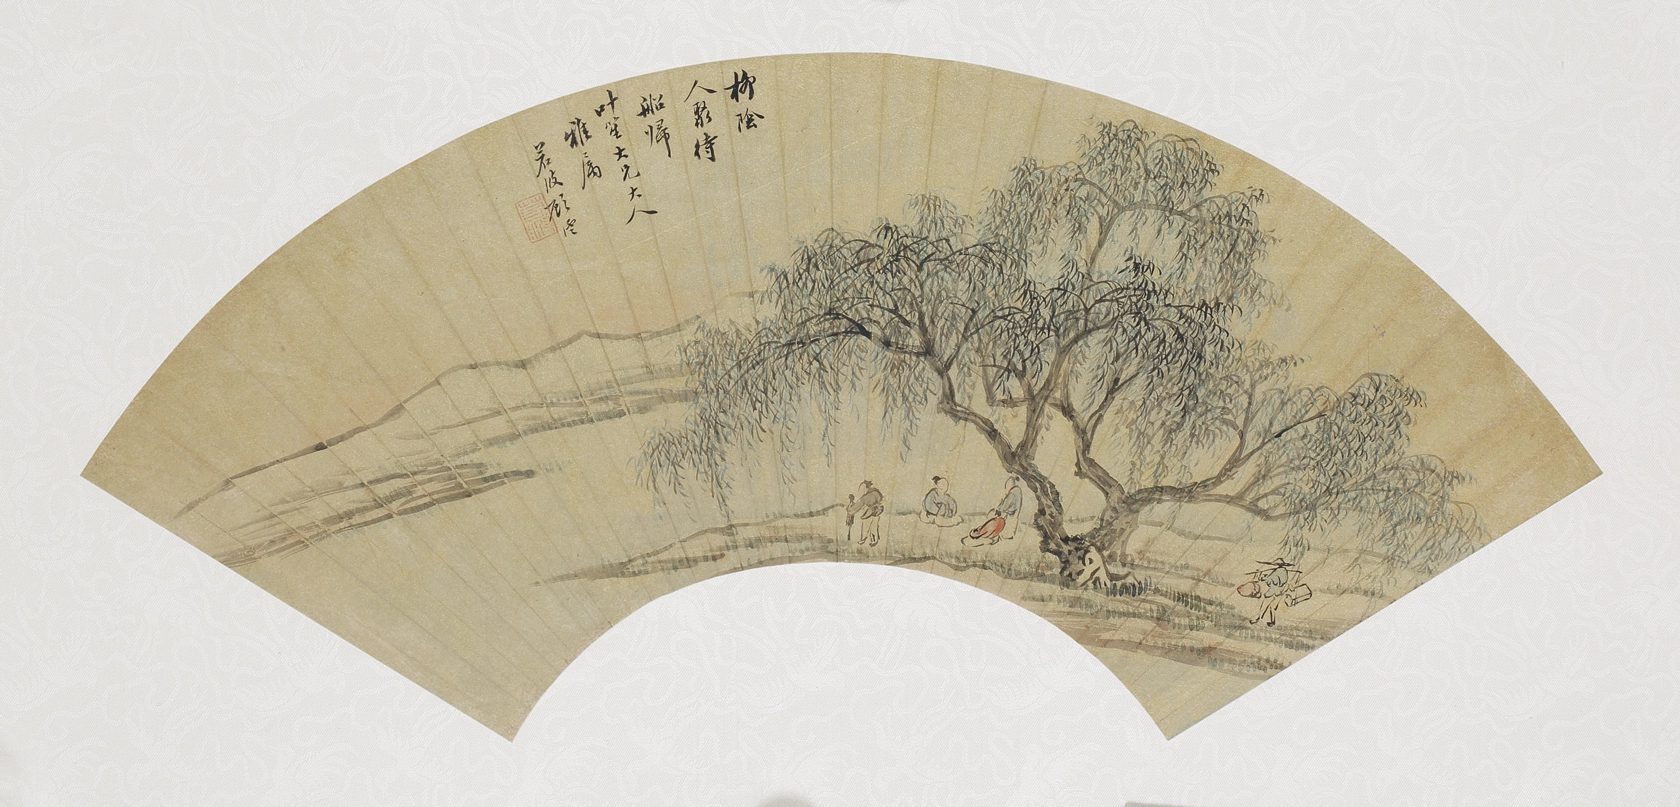 柳陰
人聚待
船歸
叶笙大兄大人
雅屬
若波顧澐